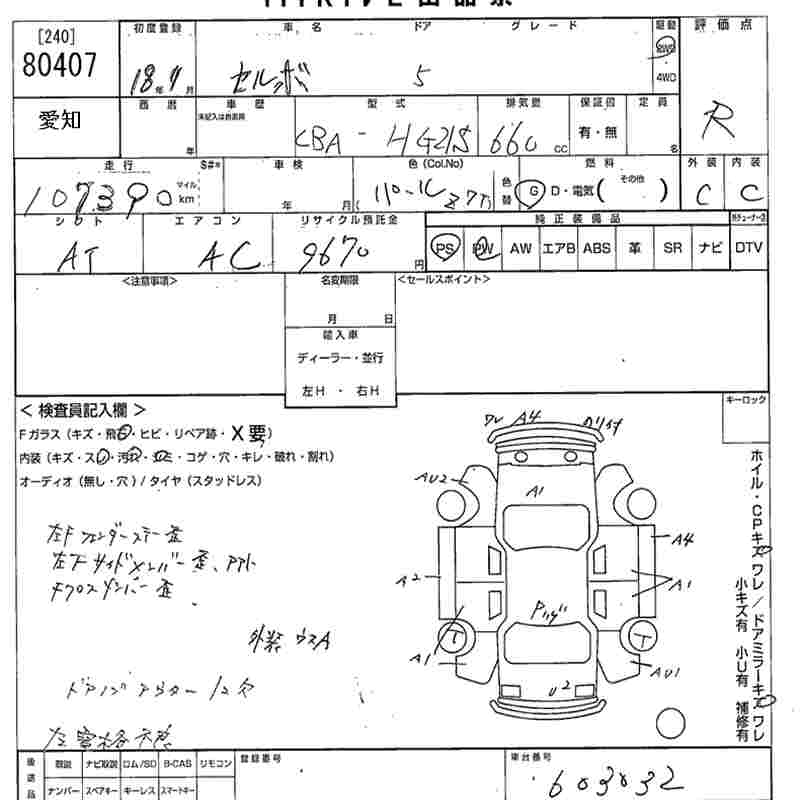 [240]
80407
愛知
初度登録 車名 ドア グレード 駆動 評価点
18年11月 セルボ 5 2WD 4WD R
西暦 車歴 型式 排気量 保証書 定員
年 未記入は自家用 CBA - HG21S 660 cc 有・無 名
走行 S#* 車検 色(Col.No) 燃料 外装 内装
107390 マイル km 年 月 パール Z7T 色替 G D・電気 (その他 ) C C
シフト エアコン リサイクル預託金 純正装備品
AT AC 9670円 PS PW AW エアB ABS 革 SR ナビ DTV
<注意事項> 名変期限 <セールスポイント>
月 日
輸入車
ディーラー・並行
左H ・ 右H
キーロック
<検査員記入欄>
Fガラス (キズ・飛石・ヒビ・リペア跡・X要)
内装 (キズ・スレ・汚れ・シミ・コゲ・穴・キレ・破れ・割れ)
オーディオ (無し・穴) / タイヤ (スタッドレス)
左Fフェンダーステー歪
左Fサイドメンバー歪、
Fクロスメンバー歪
外装 ウスA
ワレ A4
AU2
A1
A4
A2
A1
A1
AU1
U2
T
T
ホイル・CPキズワレ/ドアミラーキズワレ
小キズ有 小U有 補修有
後送品 取説 ナビ取説 ロム/SD B-CAS リモコン 登録番号 車台番号
ナンバー スペアキー キーレス スマートキー 603032